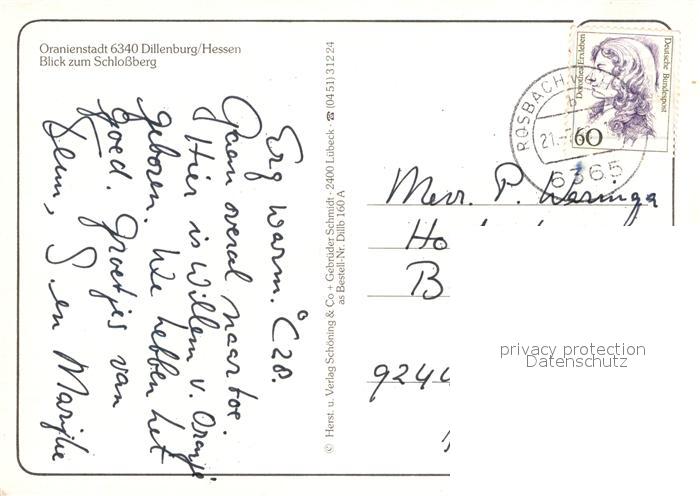 Oranienstadt 6340 Dillenburg/Hessen
Blick zum Schloßberg
Erg warm. °C 28.
Gaan overal naartoe.
Hier is Willem v. Oranje
geboren. We hebben het
goed. Groetjes van
Teun, S. en Marijke
© Herst. u. Verlag Schöning & Co + Gebrüder Schmidt · 2400 Lübeck · ☎ (04 51) 3 12 24
as Bestell-Nr. Dillb 160 A
Dorothea Erxleben
Deutsche Bundespost
60
ROSBACH v. d. H.
b
21.
6365
Mevr. P. Weringa
Ho
B
9244
privacy protection
Datenschutz